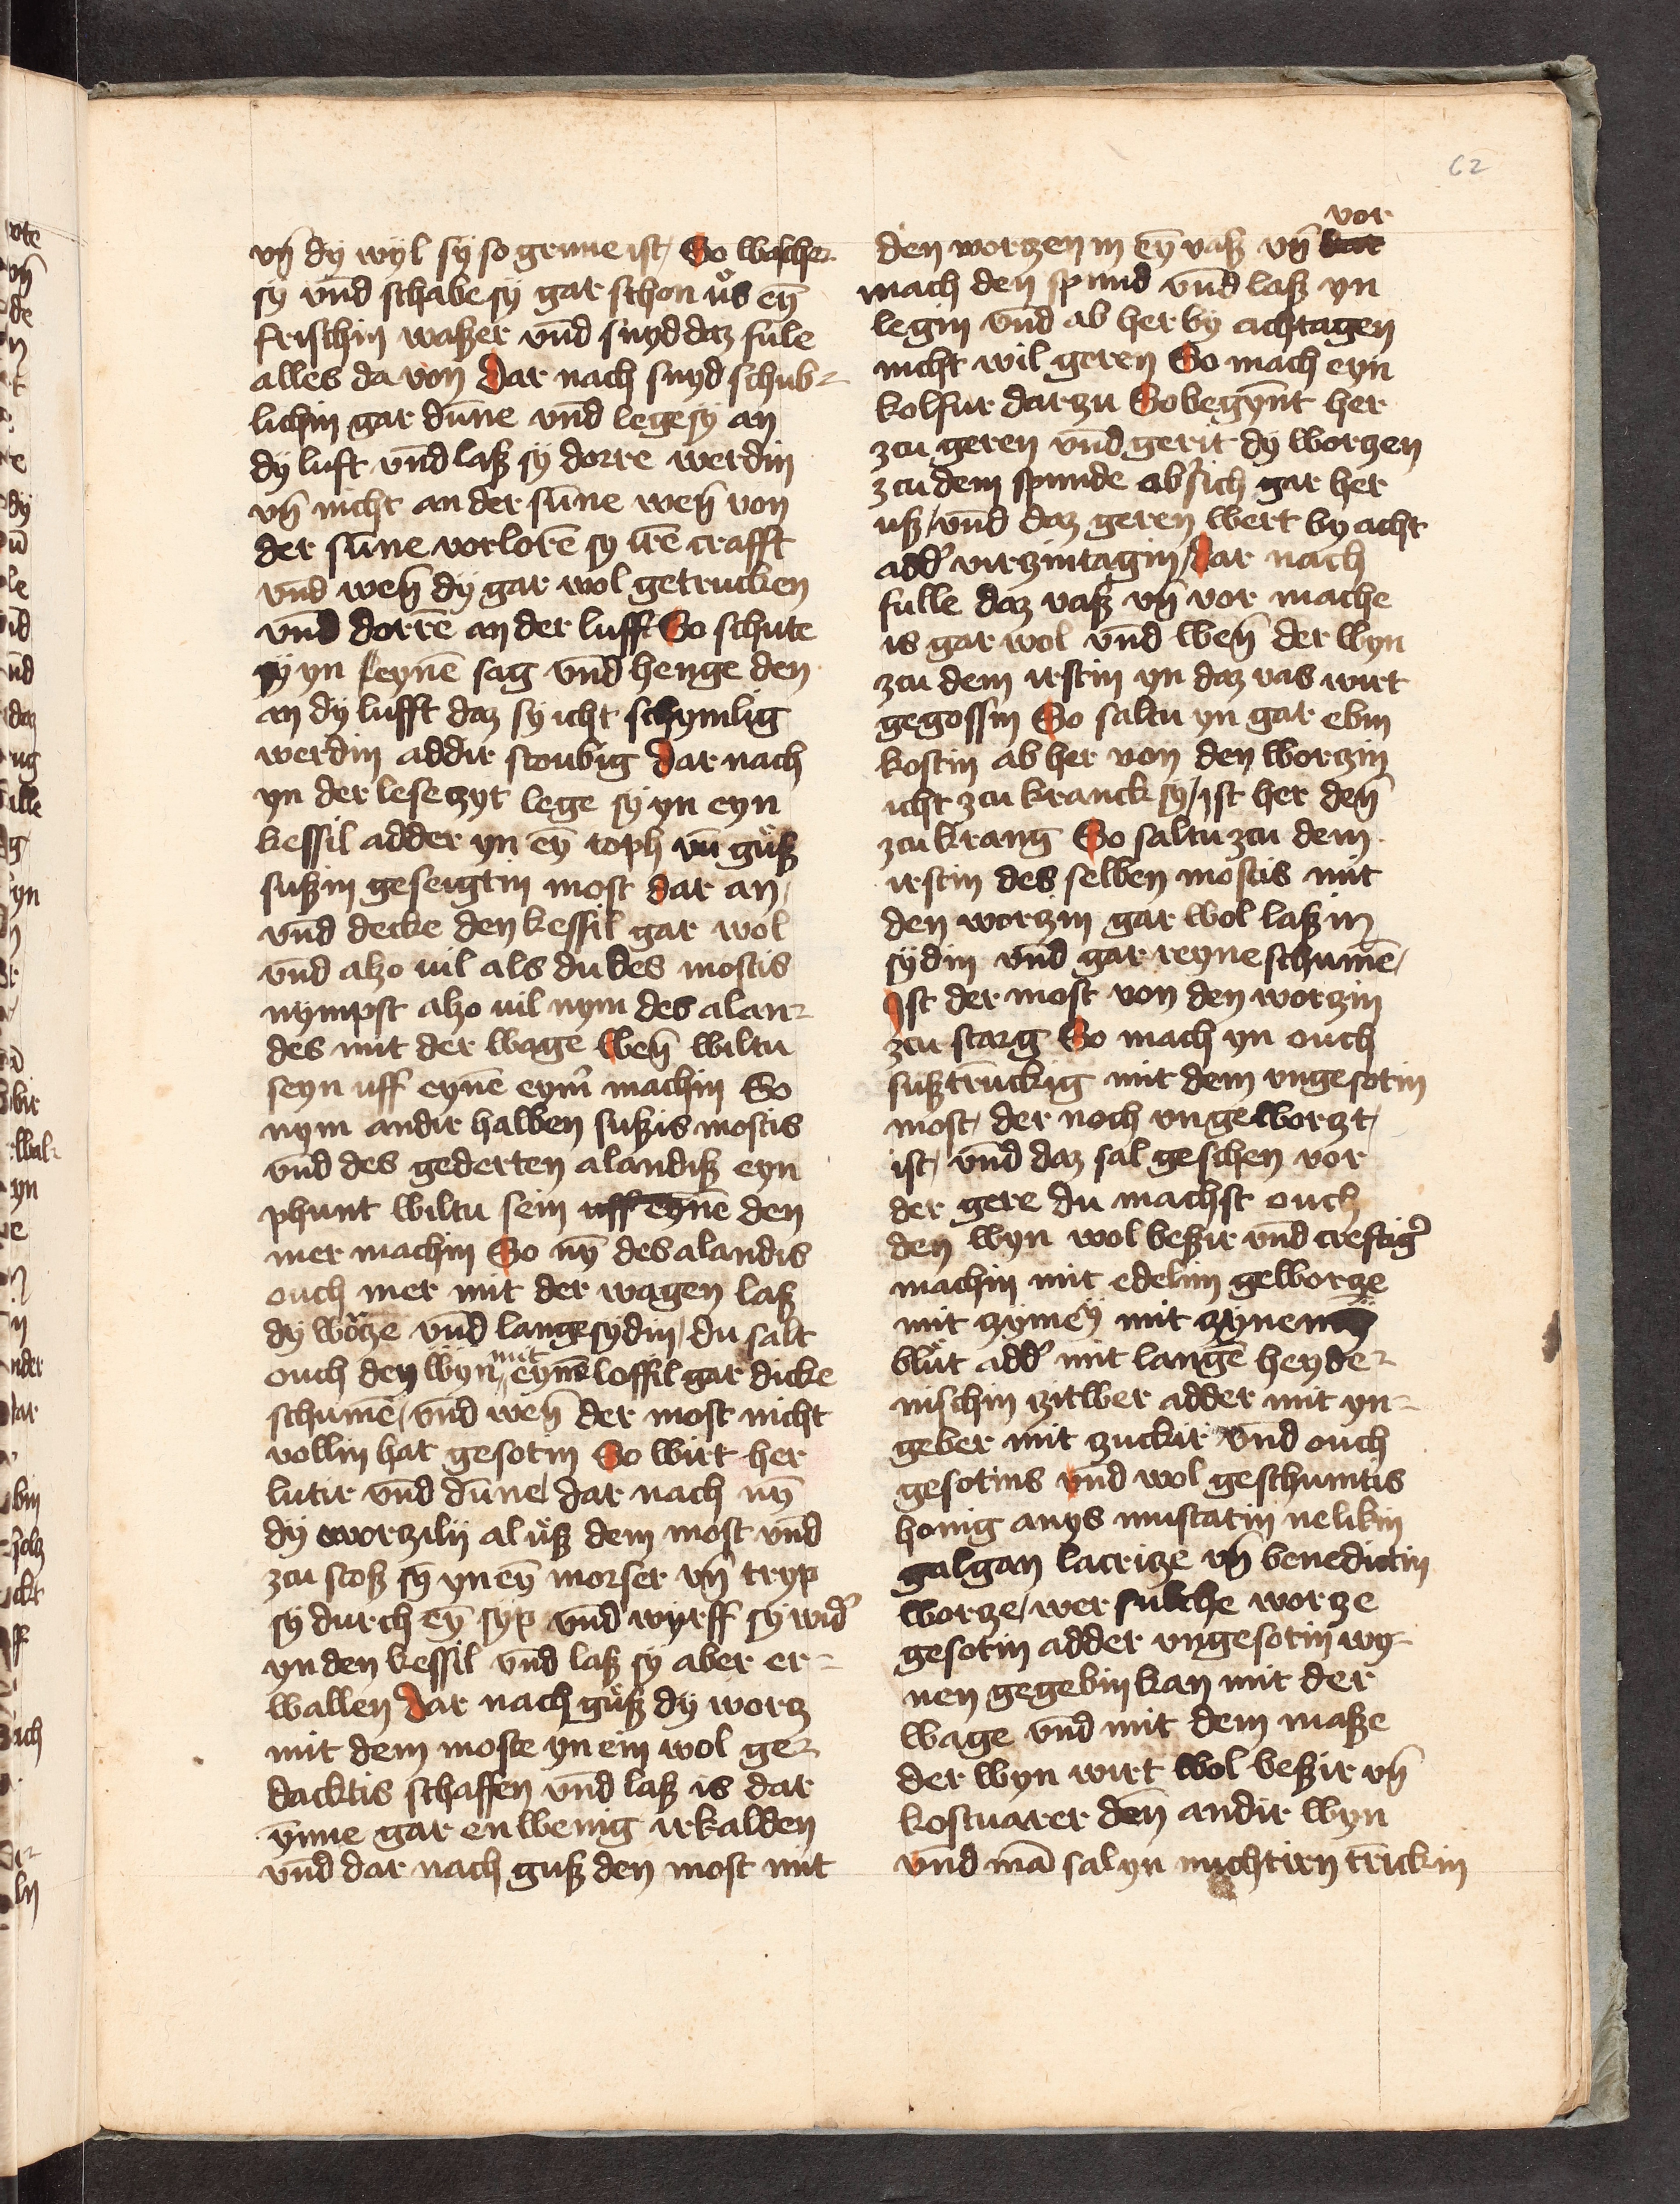 62
vn̄ dy wyl sy so grune ist / So wasche
sy vnd schabe sy gar schon uͦs eyn̄
frischin waßer vnd snyd daz fule
alles da von Dar nach snyd schub⸗
lichin gar dūne vnd lege sy an
dy luft vnd laß sy dorre werdin
vn̄ nicht an der sūne wen̄ von
der sūne vorlorē sy irē crafft
vnd wen̄ dy gar wol getrucken
vnd dorrē an der lufft So schute
sy yn leynē sag vnd henge den
an dy lufft daz sy icht schymlig
werdin addir stoubig Dar nach
yn der lesetzyt lege sy yn eyn
kessil adder yn ey̅ toph vn̄ guͦß
sußin geseigtin most dar an /
vnd decke den kessil gar wol
vnd alzo uil als du des mostis
nympst alzo uil nym des alan⸗
des mit der wage Wen̄ wiltu
seyn uff eynē eym̄ machin So
nym andir halben sußis mostis
vnd des gederten alandiß eyn
phunt wiltu sein uff eynē den
mer machin So ny̅ des alandis
ouch mer mit der wagen laß
dy wotze vnd lange sydin / du salt
ouch den wyn mit eynē loffil gar dicke
schumē / vnd wen̄ der most nicht
vollin hat gesotin So wirt her
lutir vnd dūne / dar nach ny̅
dy worzilij al uͦß dem most vnd
zcu stoß sy yn ey̅ morser vn̄ tryp
sy durch ey̅ syp vnd wyrff sy wid̓
yn den kessil vnd laß sy aber er⸗
wallen Dar nach guͦß dy worz
mit dem moste yn ein wol ge⸗
dacktis schaffen vnd laß is dar
ynne gar en wenig irkalden
vnd dar nach guß den most mit
den worzen in ey̅ vaß vn̄ vor
mach den spund vnd laß yn
legin vnd ab her by achtagen
nicht wil geren So mach eyn
kolfur darzu So begyn̄t her
zcu geren vnd gerit dy worzen
zcu dem spunde ob sich gar her
uß / vnd daz geren wert by acht
add̓ virzintagin / Dar nach
fulle daz vaß vn̄ vor mache
is gar wol vnd wen̄ der wyn
zcu dem irstin yn daz vas wirt
gegossin So saltu yn gar ebin
kostin ab her von den worzin
icht zcu kranck sy / ist her den̄
zcu krang So saltu zcu dem
irstin des selben mostis mit
den worzin gar wol laßin
sydin vnd gar reyne schumē /
Ist der most von den worzin
zcu starg So mach yn ouch
sußtrūckig mit dem vngesotin
most / der noch vngeworzt /
ist / vnd daz sal geschen vor
der gere du machst ouch
den wyn wol beßir vnd creftig̓
machin mit edelim geworze
mit zymey mit zynemey
bluͦt add̓ mit langē heyde⸗
nischin zitwer adder mit yn⸗
geber mit zuckir vnd ouch
gesotins vnd wol geschumtis
honig anys muscatin nelikin
galgan lacritze vn̄ benedictin
worze / wer sulche worze
gesotin adder vngesotin wy⸗
nen gegebin kan mit der
wage vnd mit dem maße
der wyn wirt wol beßir vn̄
kostuarer den̄ andir wyn
vnd mā sal yn nuchtirn trīckin